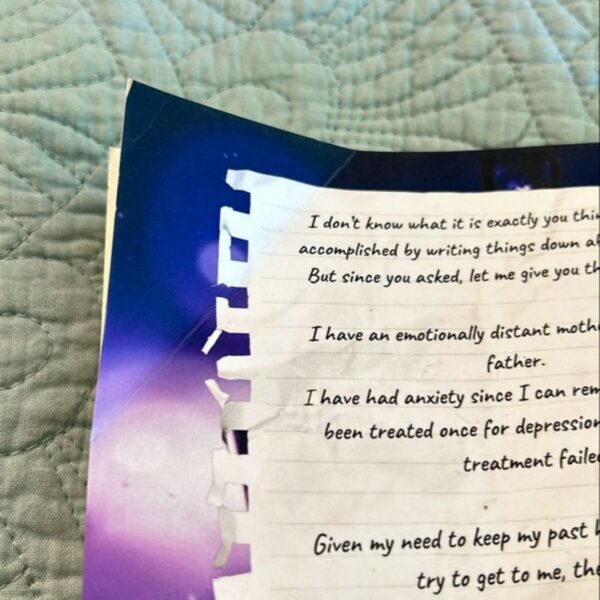 I don't know what it is exactly you
accomplished by writing things down
But since you asked, let me give you
I have an emotionally distant
father.
I have had anxiety since I can
been treated once for depression
treatment
Given my need to keep my past
try to get to me,